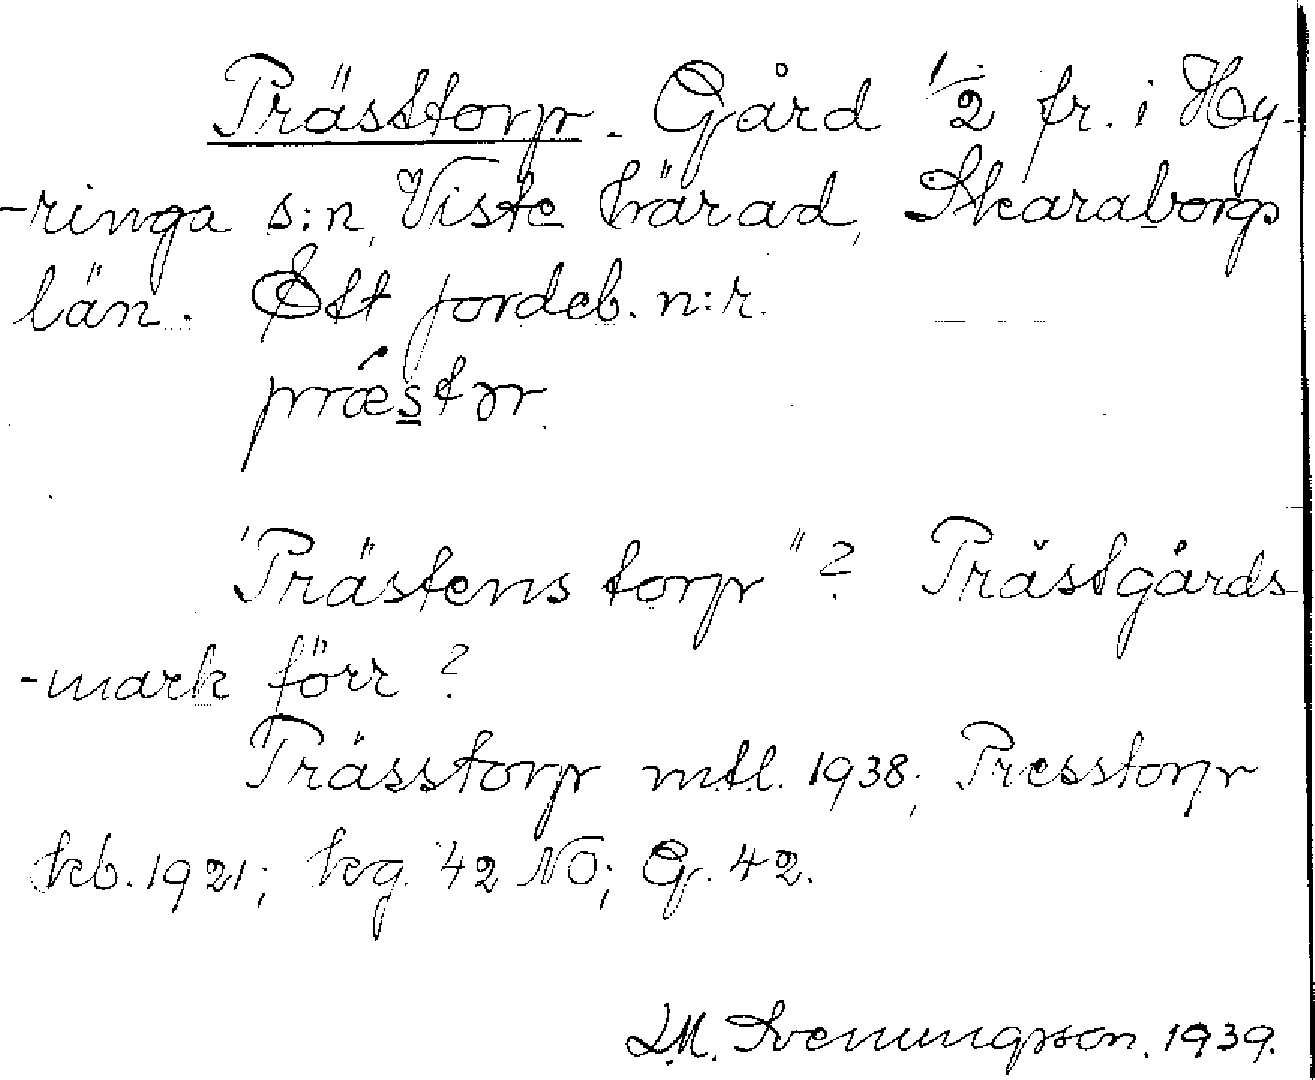 Prässtorp. Gård 1/2 fr. i Hy-
-ringa s:n, Viste härad, Skaraborgs
län. Ett jordeb. n:r.
præ´stɔr
"Prästens torp"? Prästgårds-
-mark förr?
Prässtorp mtl. 1938; Presstorp
kb. 1921; kg. 42 NO; G. 42.
L.M. Svenungsson. 1939.